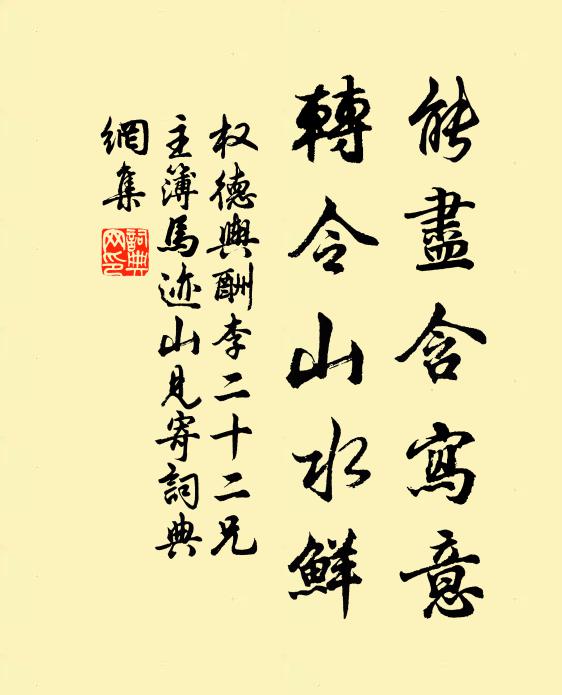 能盡含寫意
轉令山水鮮
权德輿酬李二十二兄
主簿馬迹山見寄詞典
網集
詞典網印